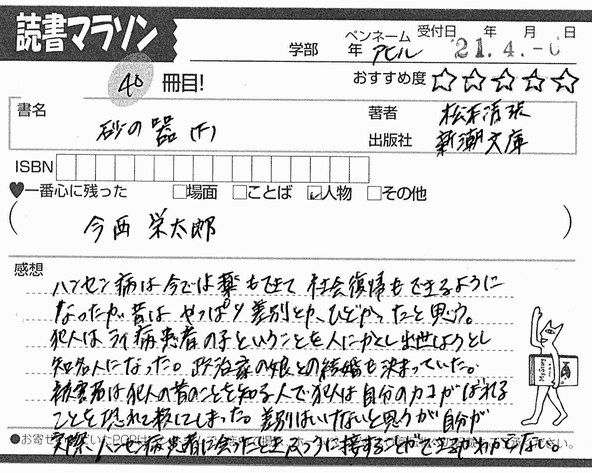 読書マラソン
学部 年 ペンネーム アヒル 受付日 年 月 日
21.4.-6
40 冊目! おすすめ度 ☆☆☆☆☆
書名 砂の器(下)
著者 松本清張
出版社 新潮文庫
ISBN
♥一番心に残った □場面 □ことば ☑人物 □その他
(今西 栄太郎)
感想
ハンセン病は今では薬もできて 社会復帰もできるように
なったが、昔は やっぱり差別とか、ひどかったと思う。
犯人は 病患者の子ということを人にかくし出世しようとし
知名人になった。政治家の娘との結婚も決まっていた。
被害者は犯人の昔のことを知る人で犯人は自分の過去がばれる
ことを恐れて殺してしまった。差別はいけないと思うが自分が
実際、ハンセン病患者に会ったとき ふつうに接することができるかわからない。
●お寄せいただいたPOPは